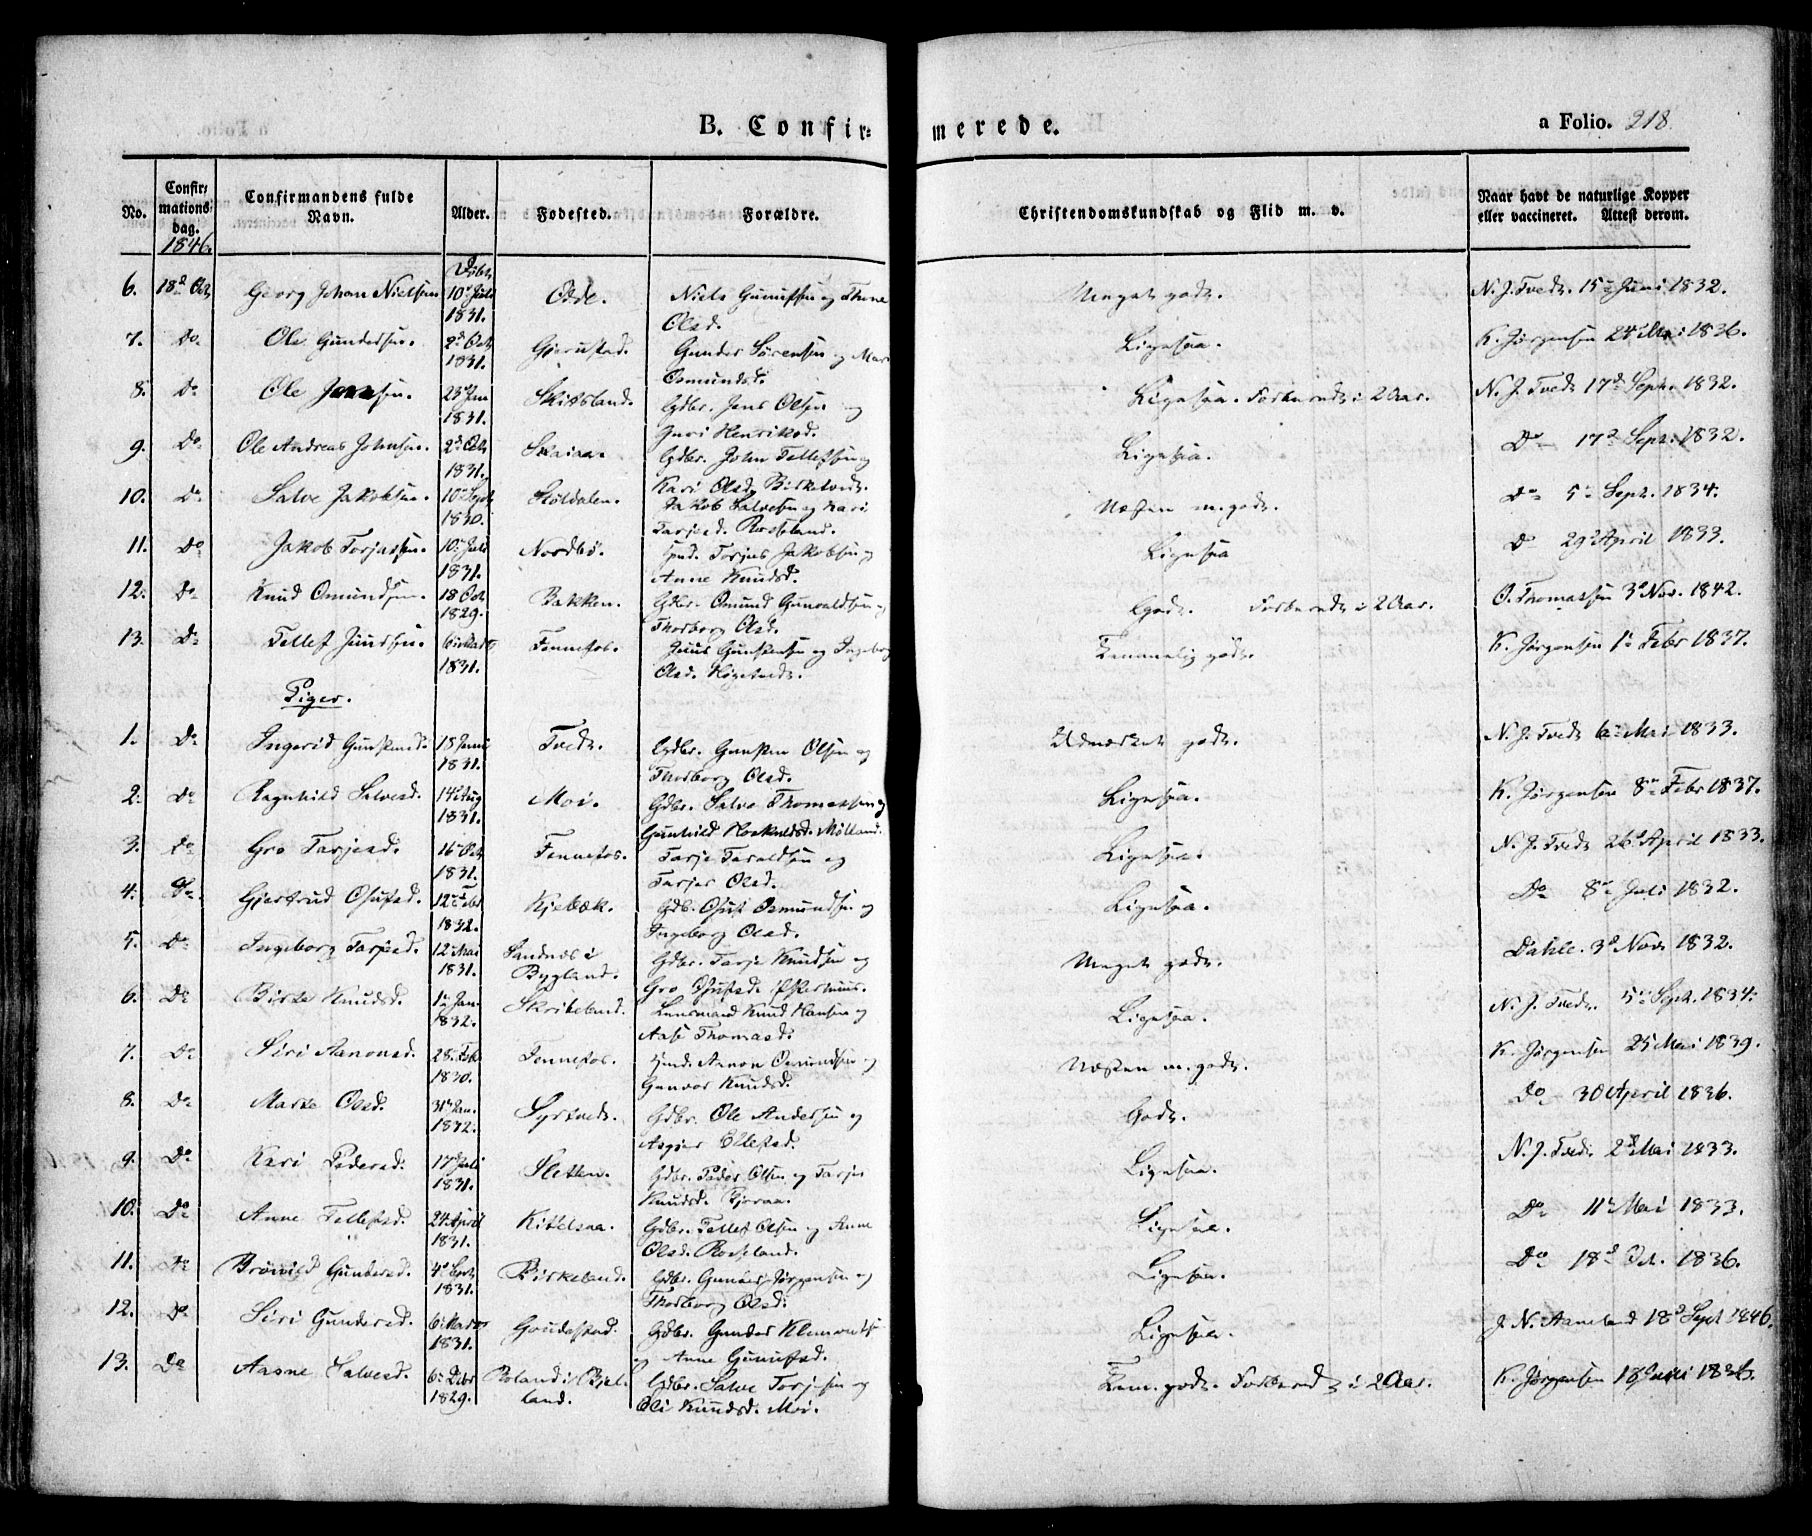 B. Confir=
merede.
a Folio. 218
No.
Confir=
mations
dag.
1846.
Confirmandens fulde
Navn.
Alder.
Fødested.
Forældre.
Christendomskundskab og Flid m. v.
Naar havt de naturlige Kopper
eller vaccineret. Attest derom.
6. 18d Oct Georg Johan Nielsen Døbt 10d Juli 1831. Odde. Niels Gunufsen og Thrine Olsd. Meget godt. N. J. Tvedt 15d Juni 1832.
7. Do Ole Gundersen. 2d Oct 1831. Gjerustad. Gunder Sørensen og Mari Osmundsd. Ligesaa. K. Jørgensen 24d Mai 1836.
8. Do Ole Jensen. 23d Jan 1831. Skisland. Gdbr. Jens Olsen og Guri Henriksd. Ligesaa. Forberedt i 2 Aar. N. J. Tvedt 17d Sept. 1832.
9. Do Ole Andreas Johnsen. 2d Oct 1831. Skaiaa. Gdbr. John Tellefsen og Kari Olsd Birketvedt. Ligesaa. Do 17d Sept. 1832.
10. Do Salve Jakobsen. 10d Sept 1830. Støldalen. Jakob Salvesen og Kari Tarjesd. Rosseland. Næsten m. godt. Do 5d Sept. 1834.
11. Do Jakob Torjussen. 10d Juli 1831. Nordbø. Hmd. Torjus Jakobsen og Anne Knudsd. Ligesaa Do 29d April 1833.
12. Do Knud Omundsen. 18 Oct 1829. Bakken. Gdbr. Omund Gunvaldsen og Thorborg Olsd. Godt. Forberedt i 2 Aar. O. Thomassen 3d Nov. 1842.
13. Do Tellef Juussen. 6d Marts 1831. Fennefos. Juus Gunstensen og Ingeborg Olsd. Høgetvedt. Temmelig godt. K. Jørgensen 1d Febr 1837.
Piger.
1. Do Ingerid Gunstensd. 15 Juni 1831. Tvedt. Gdbr. Gunsten Olsen og Thorborg Olsd. Udmærket godt. N. J. Tvedt 6d Mai 1833.
2. Do Ragnhild Salvesd. 14d Aug 1831. Moi. Gdbr. Salve Thomassen og Gunhild Hoskuldsd. Mølland. Ligesaa. K. Jørgensen 8d Febr 1837.
3. Do Gro Tarjesd. 16d Oct 1831. Fennefos. Tarje Taraldsen og Tarjer Olsd. Ligesaa. N. J. Tvedt 26d April 1833.
4. Do Gjertrud Osufsd. 12d Febr 1832. Kjebæk. Gdb. Osuf Osmundsen og Ingeborg Olsd. Ligesaa. Do 8d Juli 1832.
5. Do Ingeborg Tarjesd. 12d Mai 1831. Sandnes i Bygland. Gdbr. Tarje Knudsen og Gro Osufsd. Ligesaa. Meget godt. Dahle. 3d Nov 1832.
6. Do Birte Knudsd. 1d Jan. 1832. Skriteland. Lensmand Knud Hansen og Aase Thomasd. Ligesaa. N. J. Tvedt. 5d Sept. 1834.
7. Do Siri Aanonsd. 28. Feb. 1830. Fennefos. Hmd. Aanon Osmundsen og Gunvor Knudsd. Næsten m. godt. K. Jørgensen 25 Mai 1839.
8. Do Marte Olsd. 31d Jan. 1832. Syrtvedt. Gdbr. Ole Andersen og Asgjer Ellefsd. Godt. Do 30 April 1836.
9. Do Kari Pedersd. 17 Juli 1831. Sletten. Gdbr. Peder Olsen og Tarjer Knudsd. Bjoraa. Ligesaa. N. J. Tvedt. 2d Mai 1833.
10. Do Anne Tellefsd. 24. April 1831. Kittelsaa. Gdbr. Tellef Olsen og Anne Olsd. Rosseland. Ligesaa. Do 11d Mai 1833.
11. Do Brønild Gundersd. 4d Sept 1831. Birkeland. Gdbr. Gunder Jørgensen og Thorborg Olsd. Ligesaa. Do 18d Oct. 1836.
12. Do Siri Gundersd. 6d Marts 1831. Goudestad. Gdbr. Gunder Klementsen og Anne Gunufsd. Ligesaa. J. N. Aaneland 18d Sept 1846.
13. Do Aasne Salvesd. 6d Debr 1829. Roland i Bjelland. Gdbr. Salve Torjesen og Eli Knudsd. Moi. Tem. godt. Forberedt i 2 Aar. K. Jørgensen 18 Juni 1836.